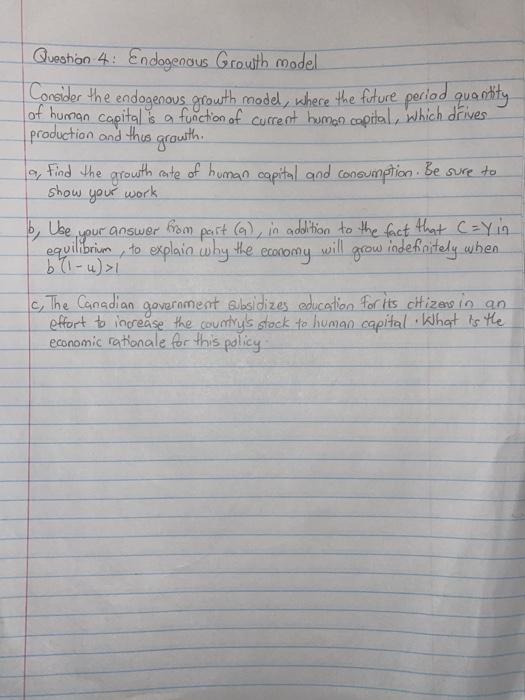 Question 4: Endogenous Growth model
Consider the endogenous growth model, where the future period quantity
of human capital is a function of current human capital, which drives
production and thus growth.
a, Find the growth rate of human capital and consumption. Be sure to
show your work
b, Use your answer from part (a), in addition to the fact that C=Y in
equilibrium, to explain why the economy will grow indefinitely when
b(1-u)>1
c, The Canadian government subsidizes education for its citizens in an
effort to increase the country's stock to human capital. What is the
economic rationale for this policy.